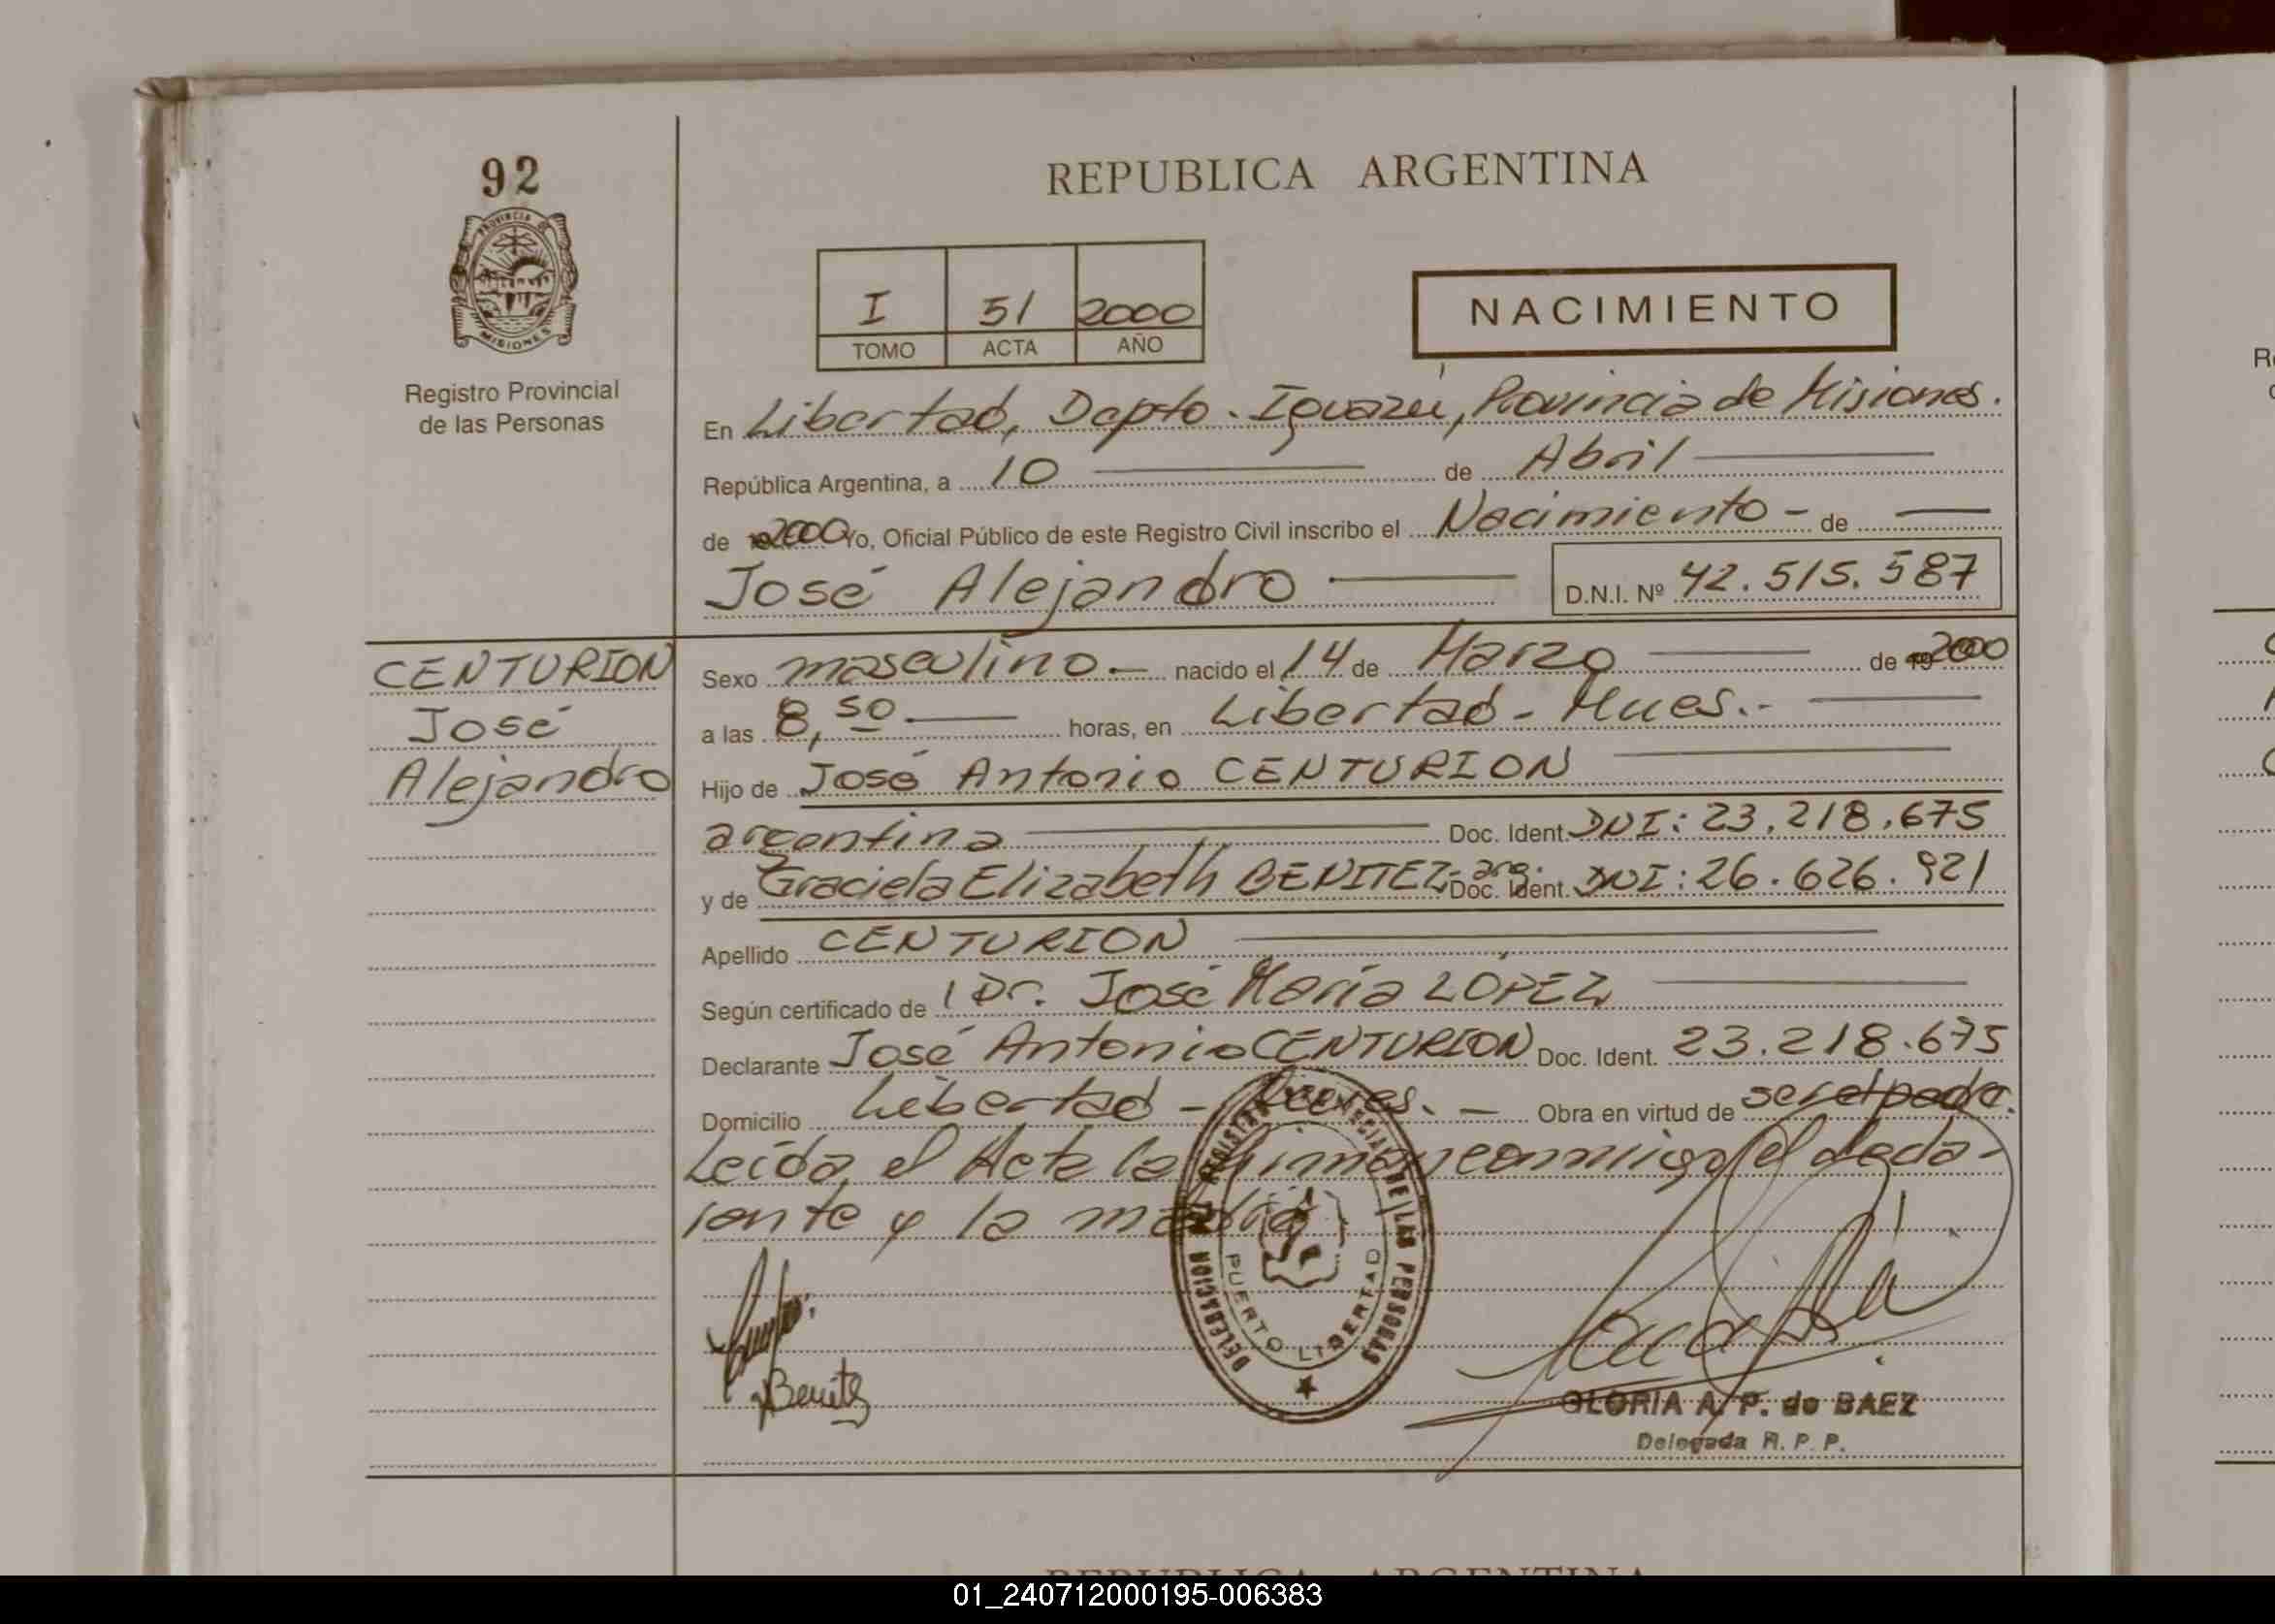 92
PROVINCIA
MISIONES
Registro Provincial
de las Personas
REPUBLICA ARGENTINA
I 51 2000
TOMO ACTA AÑO
NACIMIENTO
En Libertad, Depto. Iguazú, Provincia de Misiones.
República Argentina, a 10 de Abril
de 2000 Yo, Oficial Público de este Registro Civil inscribo el Nacimiento - de
José Alejandro D.N.I. Nº 42.515.587
CENTURION
José
Alejandro
Sexo masculino.- nacido el 14 de Marzo de 2000
a las 8,50 horas, en Libertad - Mnes.-
Hijo de José Antonio CENTURION
argentina Doc. Ident. DNI: 23.218.675
y de Graciela Elizabeth BENITEZ- arg. Doc. Ident. DNI: 26.626.921
Apellido CENTURION
Según certificado de Dr. José María LÓPEZ
Declarante José Antonio CENTURION Doc. Ident. 23.218.675
Domicilio Libertad - Mnes. - Obra en virtud de ser el padre.
Leída el Acta la firman conmigo el decla-
rante y la madre
DELEGACION DEL REGISTRO PROVINCIAL DE LAS PERSONAS
PUERTO LIBERTAD
Benitez
GLORIA A. P. de BAEZ
Delegada R. P. P.
REPUBLICA ARGENTINA
01_240712000195-006383